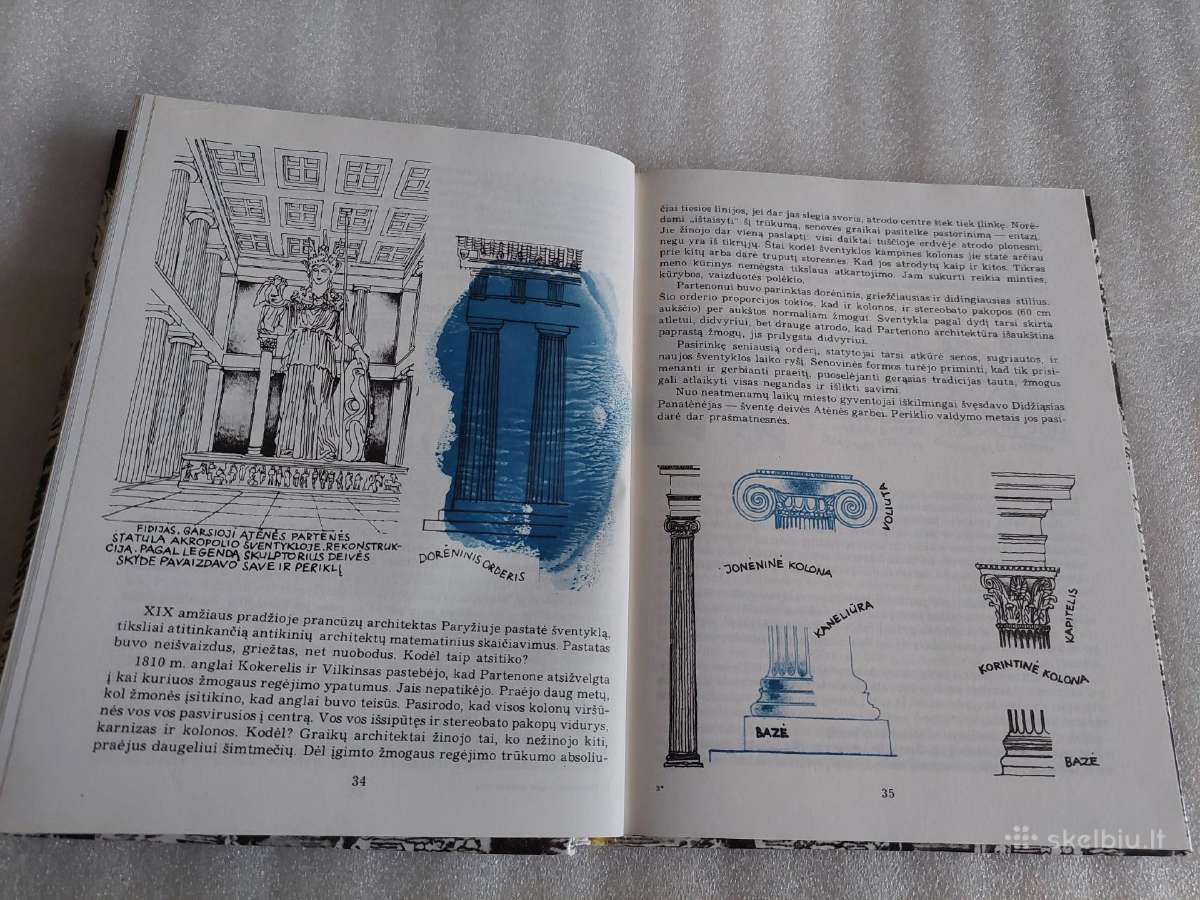 FIDIJAS. GARSIOJI ATĖNĖS PARTĖNĖS
STATULA AKROPOLIO ŠVENTYKLOJE. REKONSTRUK-
CIJA. PAGAL LEGENDĄ SKULPTORIUS DEIVĖS
SKYDE PAVAIZDAVO SAVE IR PERIKLĮ
DORĖNINIS ORDERIS
XIX amžiaus pradžioje prancūzų architektas Paryžiuje pastatė šventyklą,
tiksliai atitinkančią antikinių architektų matematinius skaičiavimus. Pastatas
buvo neišvaizdus, griežtas, net nuobodus. Kodėl taip atsitiko?
1810 m. anglai Kokerelis ir Vilkinsas pastebėjo, kad Partenone atsižvelgta
į kai kuriuos žmogaus regėjimo ypatumus. Jais nepatikėjo. Praėjo daug metų,
kol žmonės įsitikino, kad anglai buvo teisūs. Pasirodo, kad visos kolonų viršū-
nės vos vos pasvirusios į centrą. Vos vos išsipūtęs ir stereobato pakopų vidurys,
karnizas ir kolonos. Kodėl? Graikų architektai žinojo tai, ko nežinojo kiti,
praėjus daugeliui šimtmečių. Dėl įgimto žmogaus regėjimo trūkumo absoliu-
34
čiai tiesios linijos, jei dar jas slegia svoris, atrodo centre šiek tiek įlinkę. Norė-
dami „ištaisyti“ šį trūkumą, senovės graikai pasitelkė pastorinimą — entazį.
Jie žinojo dar vieną paslaptį: visi daiktai tuščioje erdvėje atrodo plonesni,
negu yra iš tikrųjų. Štai kodėl šventyklos kampines kolonas jie statė arčiau
prie kitų arba darė truputį storesnes. Kad jos atrodytų kaip ir kitos. Tikras
meno kūrinys nemėgsta tikslaus atkartojimo. Jam sukurti reikia minties,
kūrybos, vaizduotės polėkio.
Partenonui buvo parinktas dorėninis, griežčiausias ir didingiausias stilius.
Šio orderio proporcijos tokios, kad ir kolonos, ir stereobato pakopos (60 cm
aukščio) per aukštos normaliam žmogui. Šventykla pagal dydį tarsi skirta
atletui, didvyriui, bet drauge atrodo, kad Partenono architektūra išaukština
paprastą žmogų, jis prilygsta didvyriui.
Pasirinkę seniausią orderį, statytojai tarsi atkūrė senos, sugriautos, ir
naujos šventyklos laiko ryšį. Senovinės formos turėjo priminti, kad tik prisi-
menanti ir gerbianti praeitį, puoselėjanti gerąsias tradicijas tauta, žmogus
gali atlaikyti visas negandas ir išlikti savimi.
Nuo neatmenamų laikų miesto gyventojai iškilmingai švęsdavo Didžiąsias
Panatėnėjas — šventę deivės Atėnės garbei. Periklio valdymo metais jos pasi-
darė dar prašmatnesnės.
VOLIUTA
JONĖNINĖ KOLONA
KANELIŪRA
BAZĖ
KAPITELIS
KORINTINĖ KOLONA
BAZĖ
3*
35
skelbiu.lt